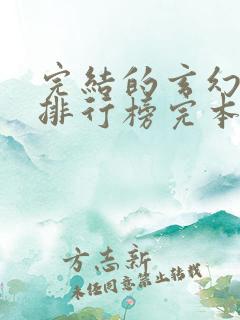 完結的玄幻
排行榜完本
方志新
未任同意禁止转载